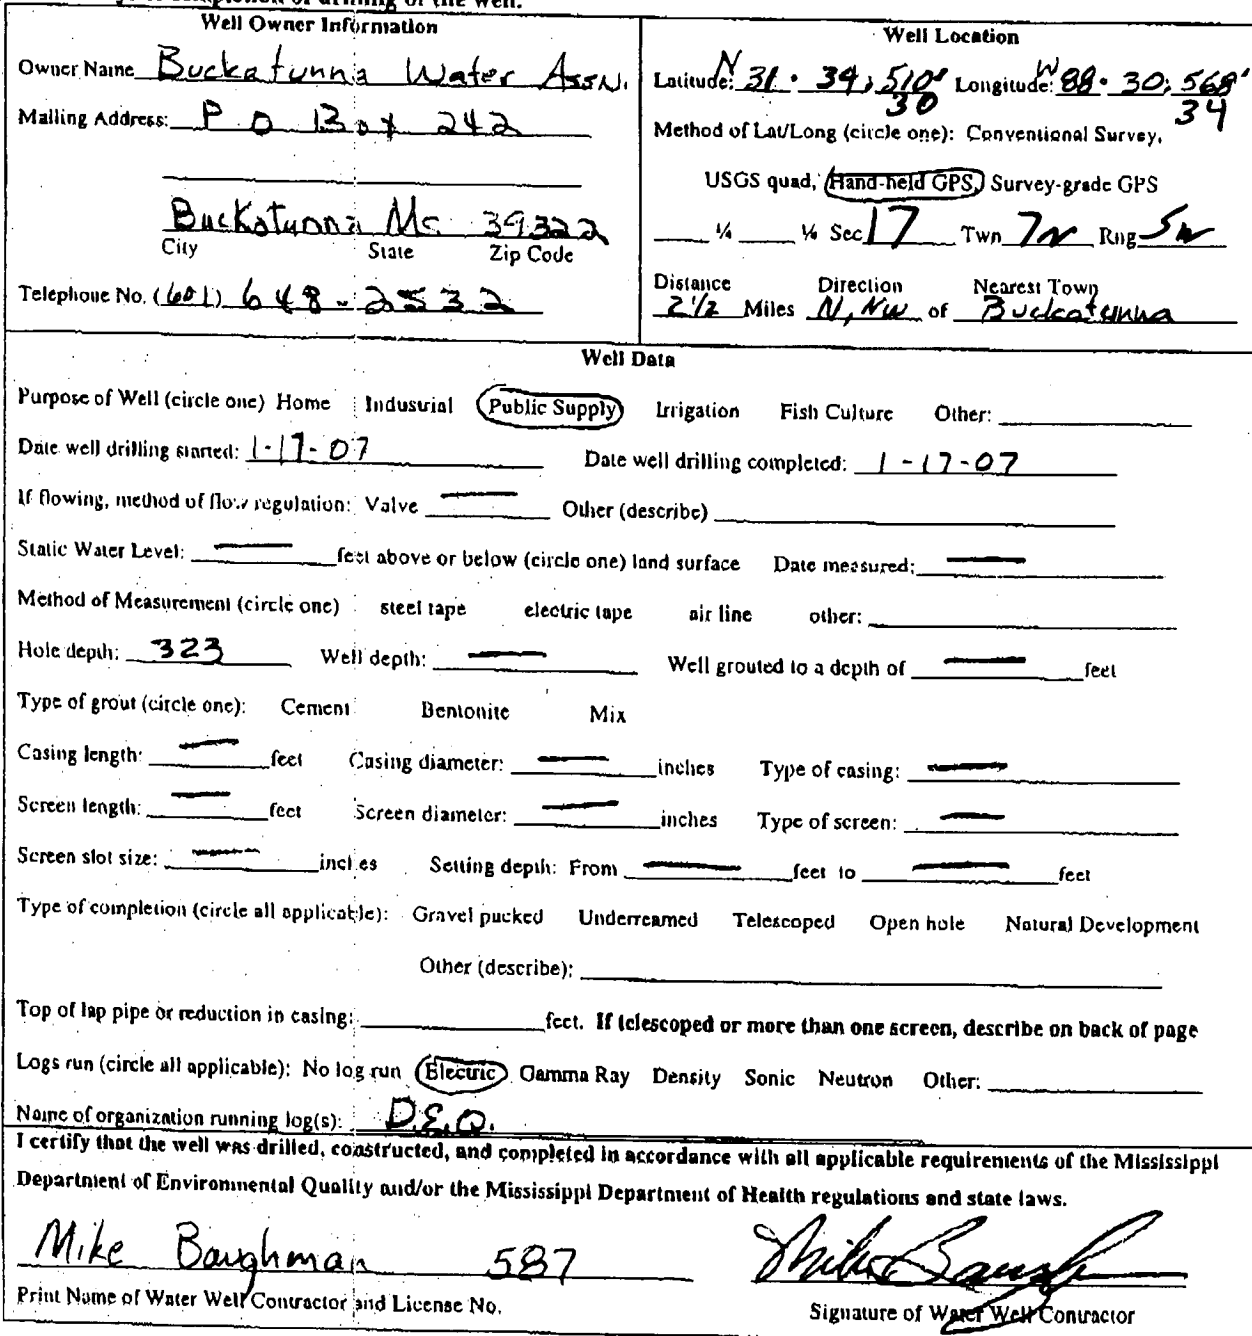 completion of drilling of the well.
Well Owner Information
Owner Name Buckatunna Water Assn.
Mailing Address: P O Box 242
Buckatunna Ms 39322
City State Zip Code
Telephone No. (601) 648-2532
Well Location
Latitude: N 31 · 34, 510' Longitude: W 88 · 30, 568'
30 34
Method of Lat/Long (circle one): Conventional Survey,
USGS quad, Hand-held GPS, Survey-grade GPS
____ ¼ ____ ¼ Sec 17 Twn 7N Rng 5W
Distance Direction Nearest Town
2 1/2 Miles N, NW of Buckatunna
Well Data
Purpose of Well (circle one) Home Industrial Public Supply Irrigation Fish Culture Other:
Date well drilling started: 1-17-07 Date well drilling completed: 1-17-07
If flowing, method of flow regulation: Valve — Other (describe)
Static Water Level: — feet above or below (circle one) land surface Date measured: —
Method of Measurement (circle one) steel tape electric tape air line other:
Hole depth: 323 Well depth: — Well grouted to a depth of — feet
Type of grout (circle one): Cement Bentonite Mix
Casing length: — feet Casing diameter: — inches Type of casing: —
Screen length: — feet Screen diameter: — inches Type of screen: —
Screen slot size: — inches Setting depth: From — feet to — feet
Type of completion (circle all applicable): Gravel packed Underreamed Telescoped Open hole Natural Development
Other (describe):
Top of lap pipe or reduction in casing: feet. If telescoped or more than one screen, describe on back of page
Logs run (circle all applicable): No log run Electric Gamma Ray Density Sonic Neutron Other:
Name of organization running log(s): D.E.Q.
I certify that the well was drilled, constructed, and completed in accordance with all applicable requirements of the Mississippi
Department of Environmental Quality and/or the Mississippi Department of Health regulations and state laws.
Mike Baughman 587 Mike Baugh
Print Name of Water Well Contractor and License No. Signature of Water Well Contractor